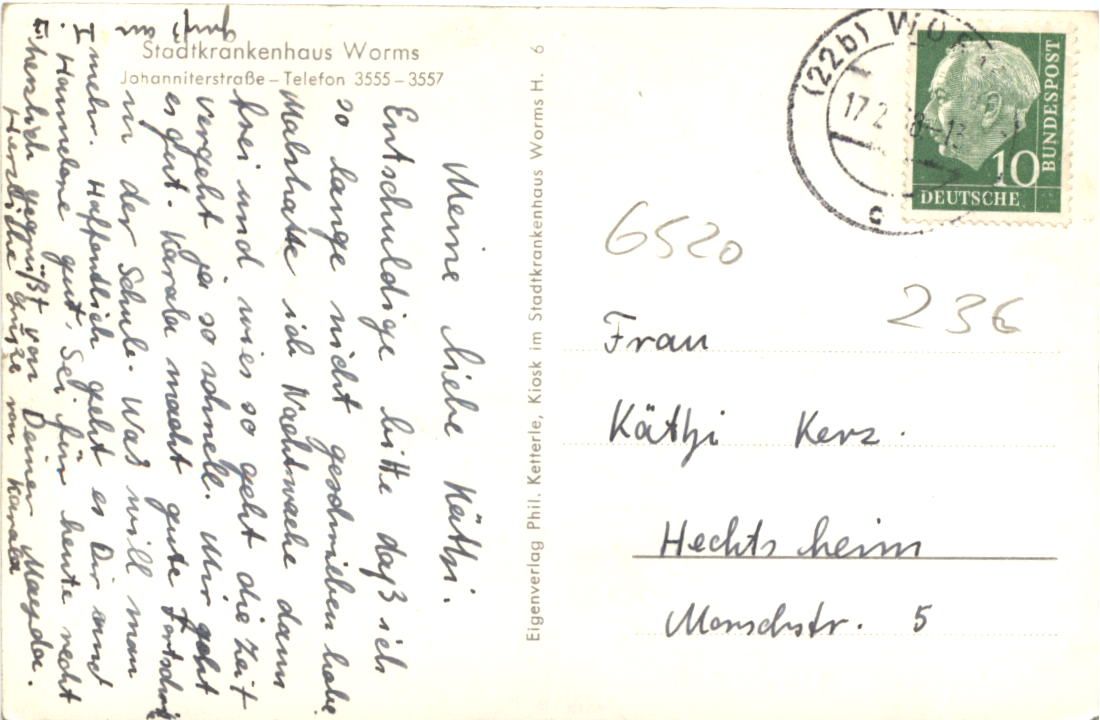 Stadtkrankenhaus Worms
Johanniterstraße – Telefon 3555 – 3557
Meine liebe Käthi.
Entschuldige bitte daß ich
so lange nicht geschrieben habe
Mal hatte ich Nachtwache dann
frei und wies so geht die Zeit
vergeht ja so schnell. Mir geht
es gut. Karola macht gute Fortschri
in der Schule. Was will man
mehr. Hoffentlich geht es Dir und
Hannelene gut. Sei für heute recht
herzlich gegrüßt von Deiner
Herzliche Grüße von Karola
Gruß an
Eigenverlag Phil. Ketterle, Kiosk im Stadtkrankenhaus Worms H. 6
(22b) WO
17.2. 58-13
c
10
DEUTSCHE
BUNDESPOST
6520
236
Frau
Käthi Kerz.
Hechtsheim
Morschstr. 5